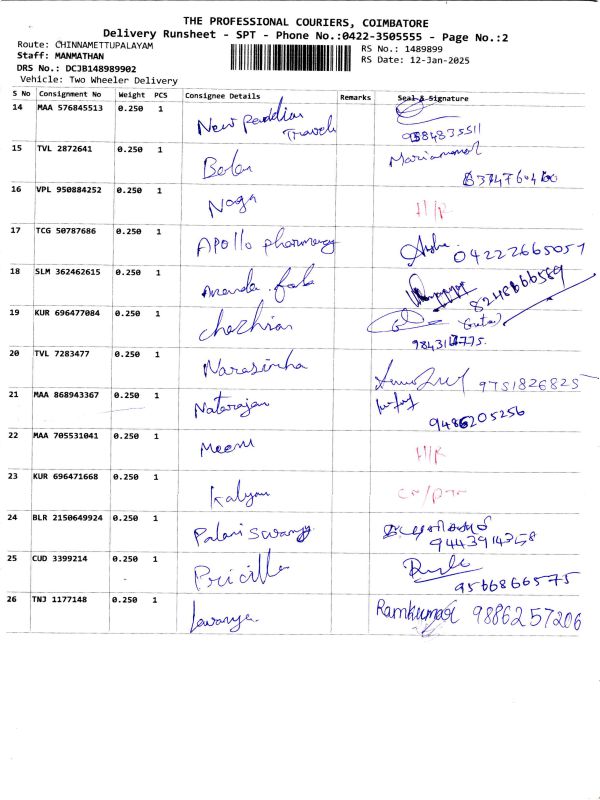 THE PROFESSIONAL COURIERS, COIMBATORE
Delivery Runsheet - SPT - Phone No.:0422-3505555 - Page No.:2
Route: CHINNAMETTUPALAYAM
Staff: MANMATHAN
DRS No.: DCJB148989902
Vehicle: Two Wheeler Delivery
RS No.: 1489899
RS Date: 12-Jan-2025
S No Consignment No Weight PCS Consignee Details Remarks Seal & Signature
14 MAA 576845513 0.250 1 New Travels
15 TVL 2872641 0.250 1 Mariammal
16 VPL 950884252 0.250 1 Naga
17 TCG 50787686 0.250 1 Apollo pharmacy 04222665057
18 SLM 362462615 0.250 1 8248666589
19 KUR 696477084 0.250 1 Chezhian
20 TVL 7283477 0.250 1 Narasimha 9751826825
21 MAA 868943367 0.250 1 Natarajan 9486205256
22 MAA 705531041 0.250 1
23 KUR 696471668 0.250 1 Kalyan
24 BLR 2150649924 0.250 1 Palaniswamy
25 CUD 3399214 0.250 1 Pricilla 9566866575
26 TNJ 1177148 0.250 1 Lavanya Ramkumar 9886257206